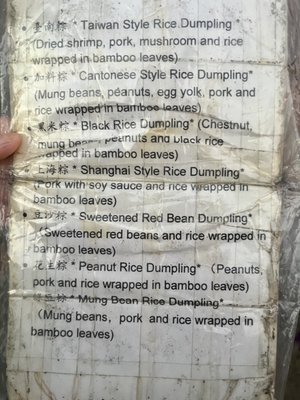 • 臺南粽 * Taiwan Style Rice Dumpling*
(Dried shrimp, pork, mushroom and rice
wrapped in bamboo leaves)
• 加料粽 * Cantonese Style Rice Dumpling*
(Mung beans, peanuts, egg yolk, pork and
rice wrapped in bamboo leaves)
• 黑米粽 * Black Rice Dumpling* (Chestnut,
mung bean, peanuts and black rice
wrapped in bamboo leaves)
• 上海粽 * Shanghai Style Rice Dumpling*
(Pork with soy sauce and rice wrapped in
bamboo leaves)
• 豆沙粽 * Sweetened Red Bean Dumpling*
(Sweetened red beans and rice wrapped in
bamboo leaves)
• 花生粽 * Peanut Rice Dumpling* (Peanuts,
pork and rice wrapped in bamboo leaves)
• 豆粽 * Mung Bean Rice Dumpling*
(Mung beans, pork and rice wrapped in
bamboo leaves)